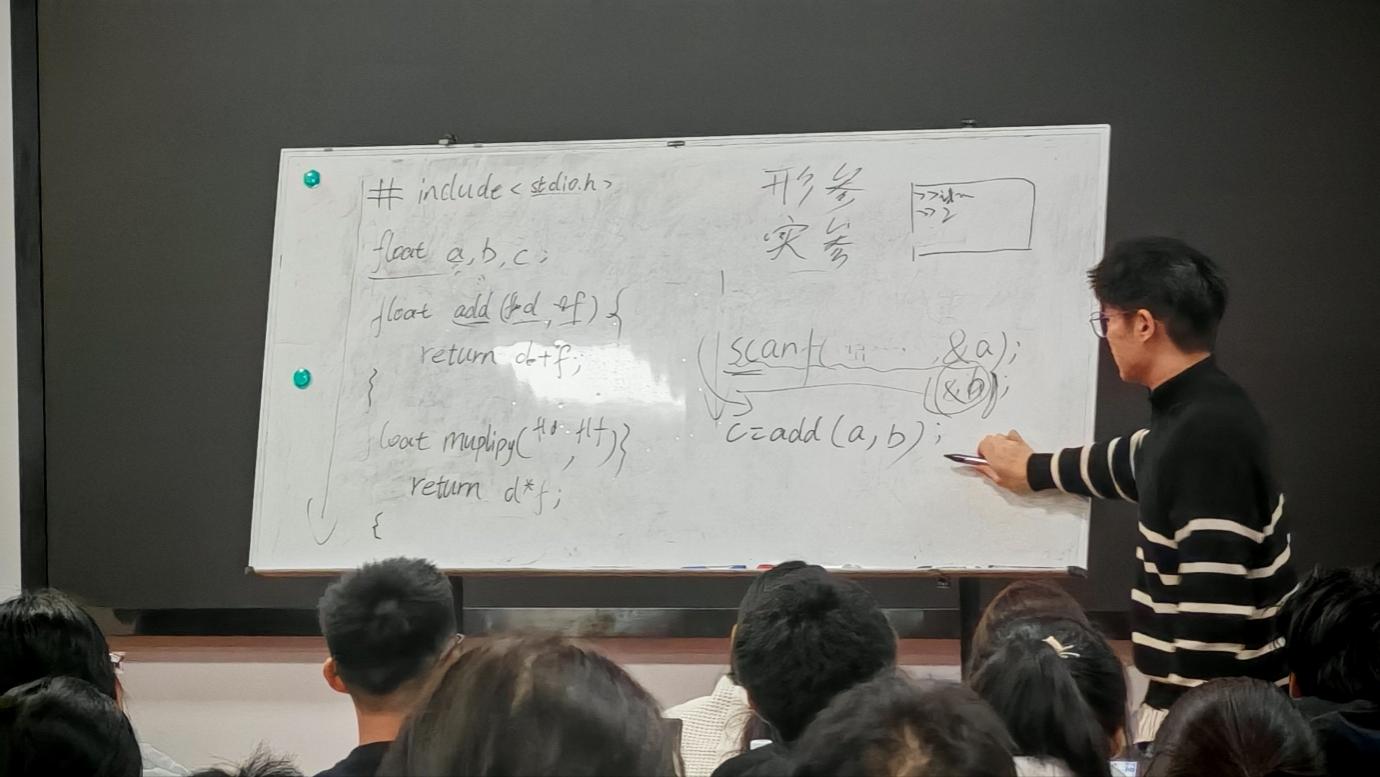 # include <stdio.h>
float a, b, c ;
float add ( d , f ) {
return d+f ;
}
float muplipy( , ) }
return d*f ;
{
形参
实参
>>
>> 2
scanf( " ...... , &a) ;
&b) ;
c=add (a, b) ;